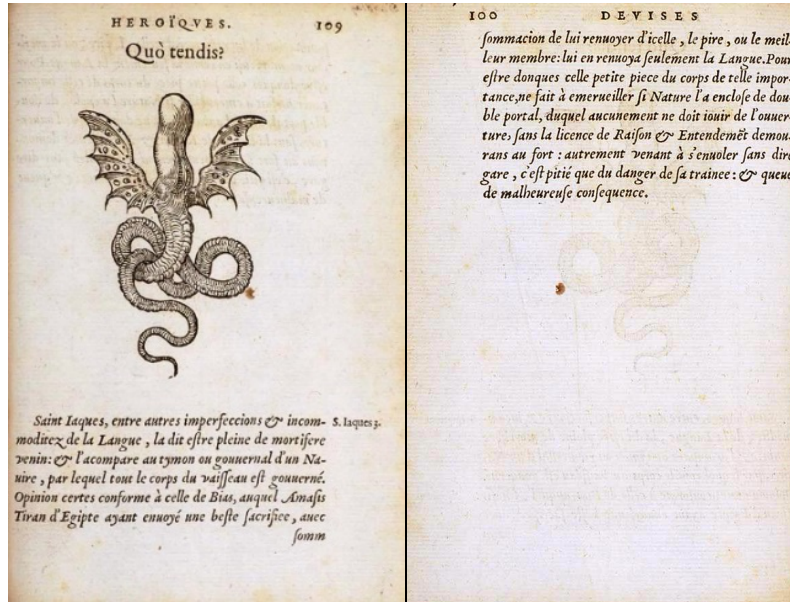 HEROÏQVES. 109
Quò tendis?
Saint Iaques, entre autres imperfeccions & incom- S. Iaques 3.
moditez de la Langue, la dit eſtre pleine de mortifere
venin: & l'acompare au tymon ou gouuernal d'un Na-
uire, par lequel tout le corps du vaiſſeau eſt gouuerné.
Opinion certes conforme à celle de Bias, auquel Amaſis
Tiran d'Egipte ayant enuoyé une beſte ſacrifiee, auec
ſomm
100 DEVISES
ſommacion de lui renuoyer d'icelle, le pire, ou le meil-
leur membre: lui en renuoya ſeulement la Langue. Pour
eſtre donques celle petite piece du corps de telle impor-
tance, ne fait à emerueiller ſi Nature l'a encloſe de dou-
ble portal, duquel aucunement ne doit iouir de l'ouuer-
ture, ſans la licence de Raiſon & Entendemẽt demou-
rans au fort: autrement venant à s'enuoler ſans dire
gare, c'eſt pitié que du danger de ſa trainee: & queue
de malheureuſe conſequence.